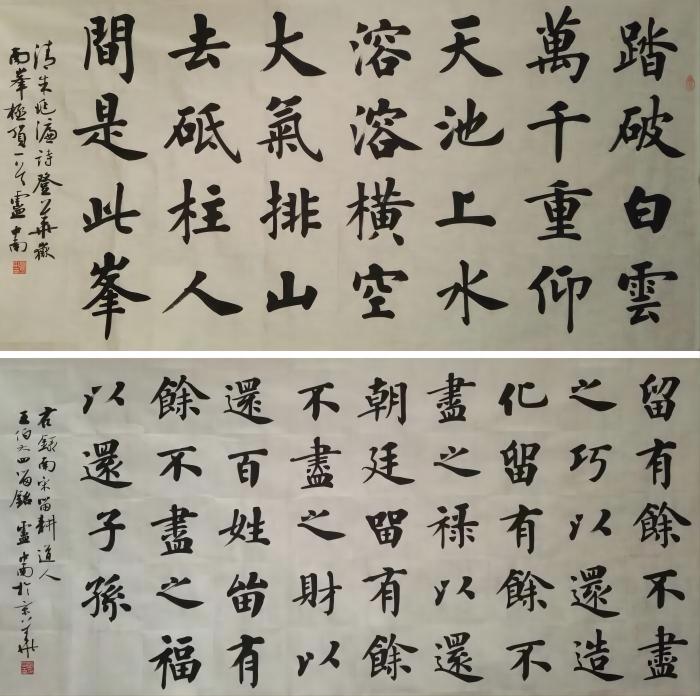 踏破白雲
萬千重仰
天池上水
溶溶橫空
大氣排山
去砥柱人
間是此峯
清朱廷濂詩登太華嶽
南峯極頂一首盧中南
留有餘不盡
之巧以還造
化留有餘不
盡之祿以還
朝廷留有餘
不盡之財以
還百姓留有
餘不盡之福
以還子孫
右錄南宋留耕道人
王伯大四留銘盧中南於京華